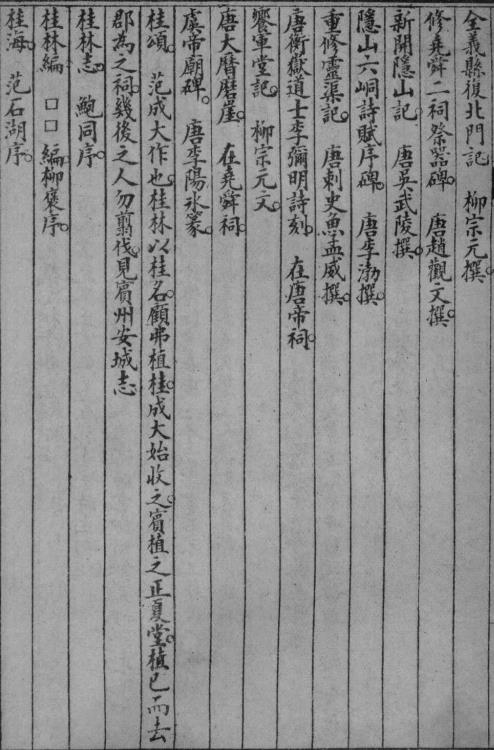 全義縣復北門記　柳宗元撰。
修堯舜二祠祭器碑。　唐趙觀文撰。
新開隱山記。　唐吳武陵撰。
隱山六峒詩賦序碑。　唐李渤撰。
重修靈渠記。　唐刺史魚孟威撰。
唐衡嶽道士李彌明詩刻。　在唐帝祠。
饗軍堂記。　柳宗元文。
唐大曆磨崖。　在堯舜祠。
虞帝廟碑。　唐李陽冰篆。
桂頌。　范成大作也。桂林以桂名。顧弗植桂。成大始收之。賓植之正夏堂。植已而去
郡為之祠。幾後之人勿翦伐。見賓州安城志
桂林志。　鮑同序。
桂林編　□□編柳襃序。
桂海。　范石湖序。